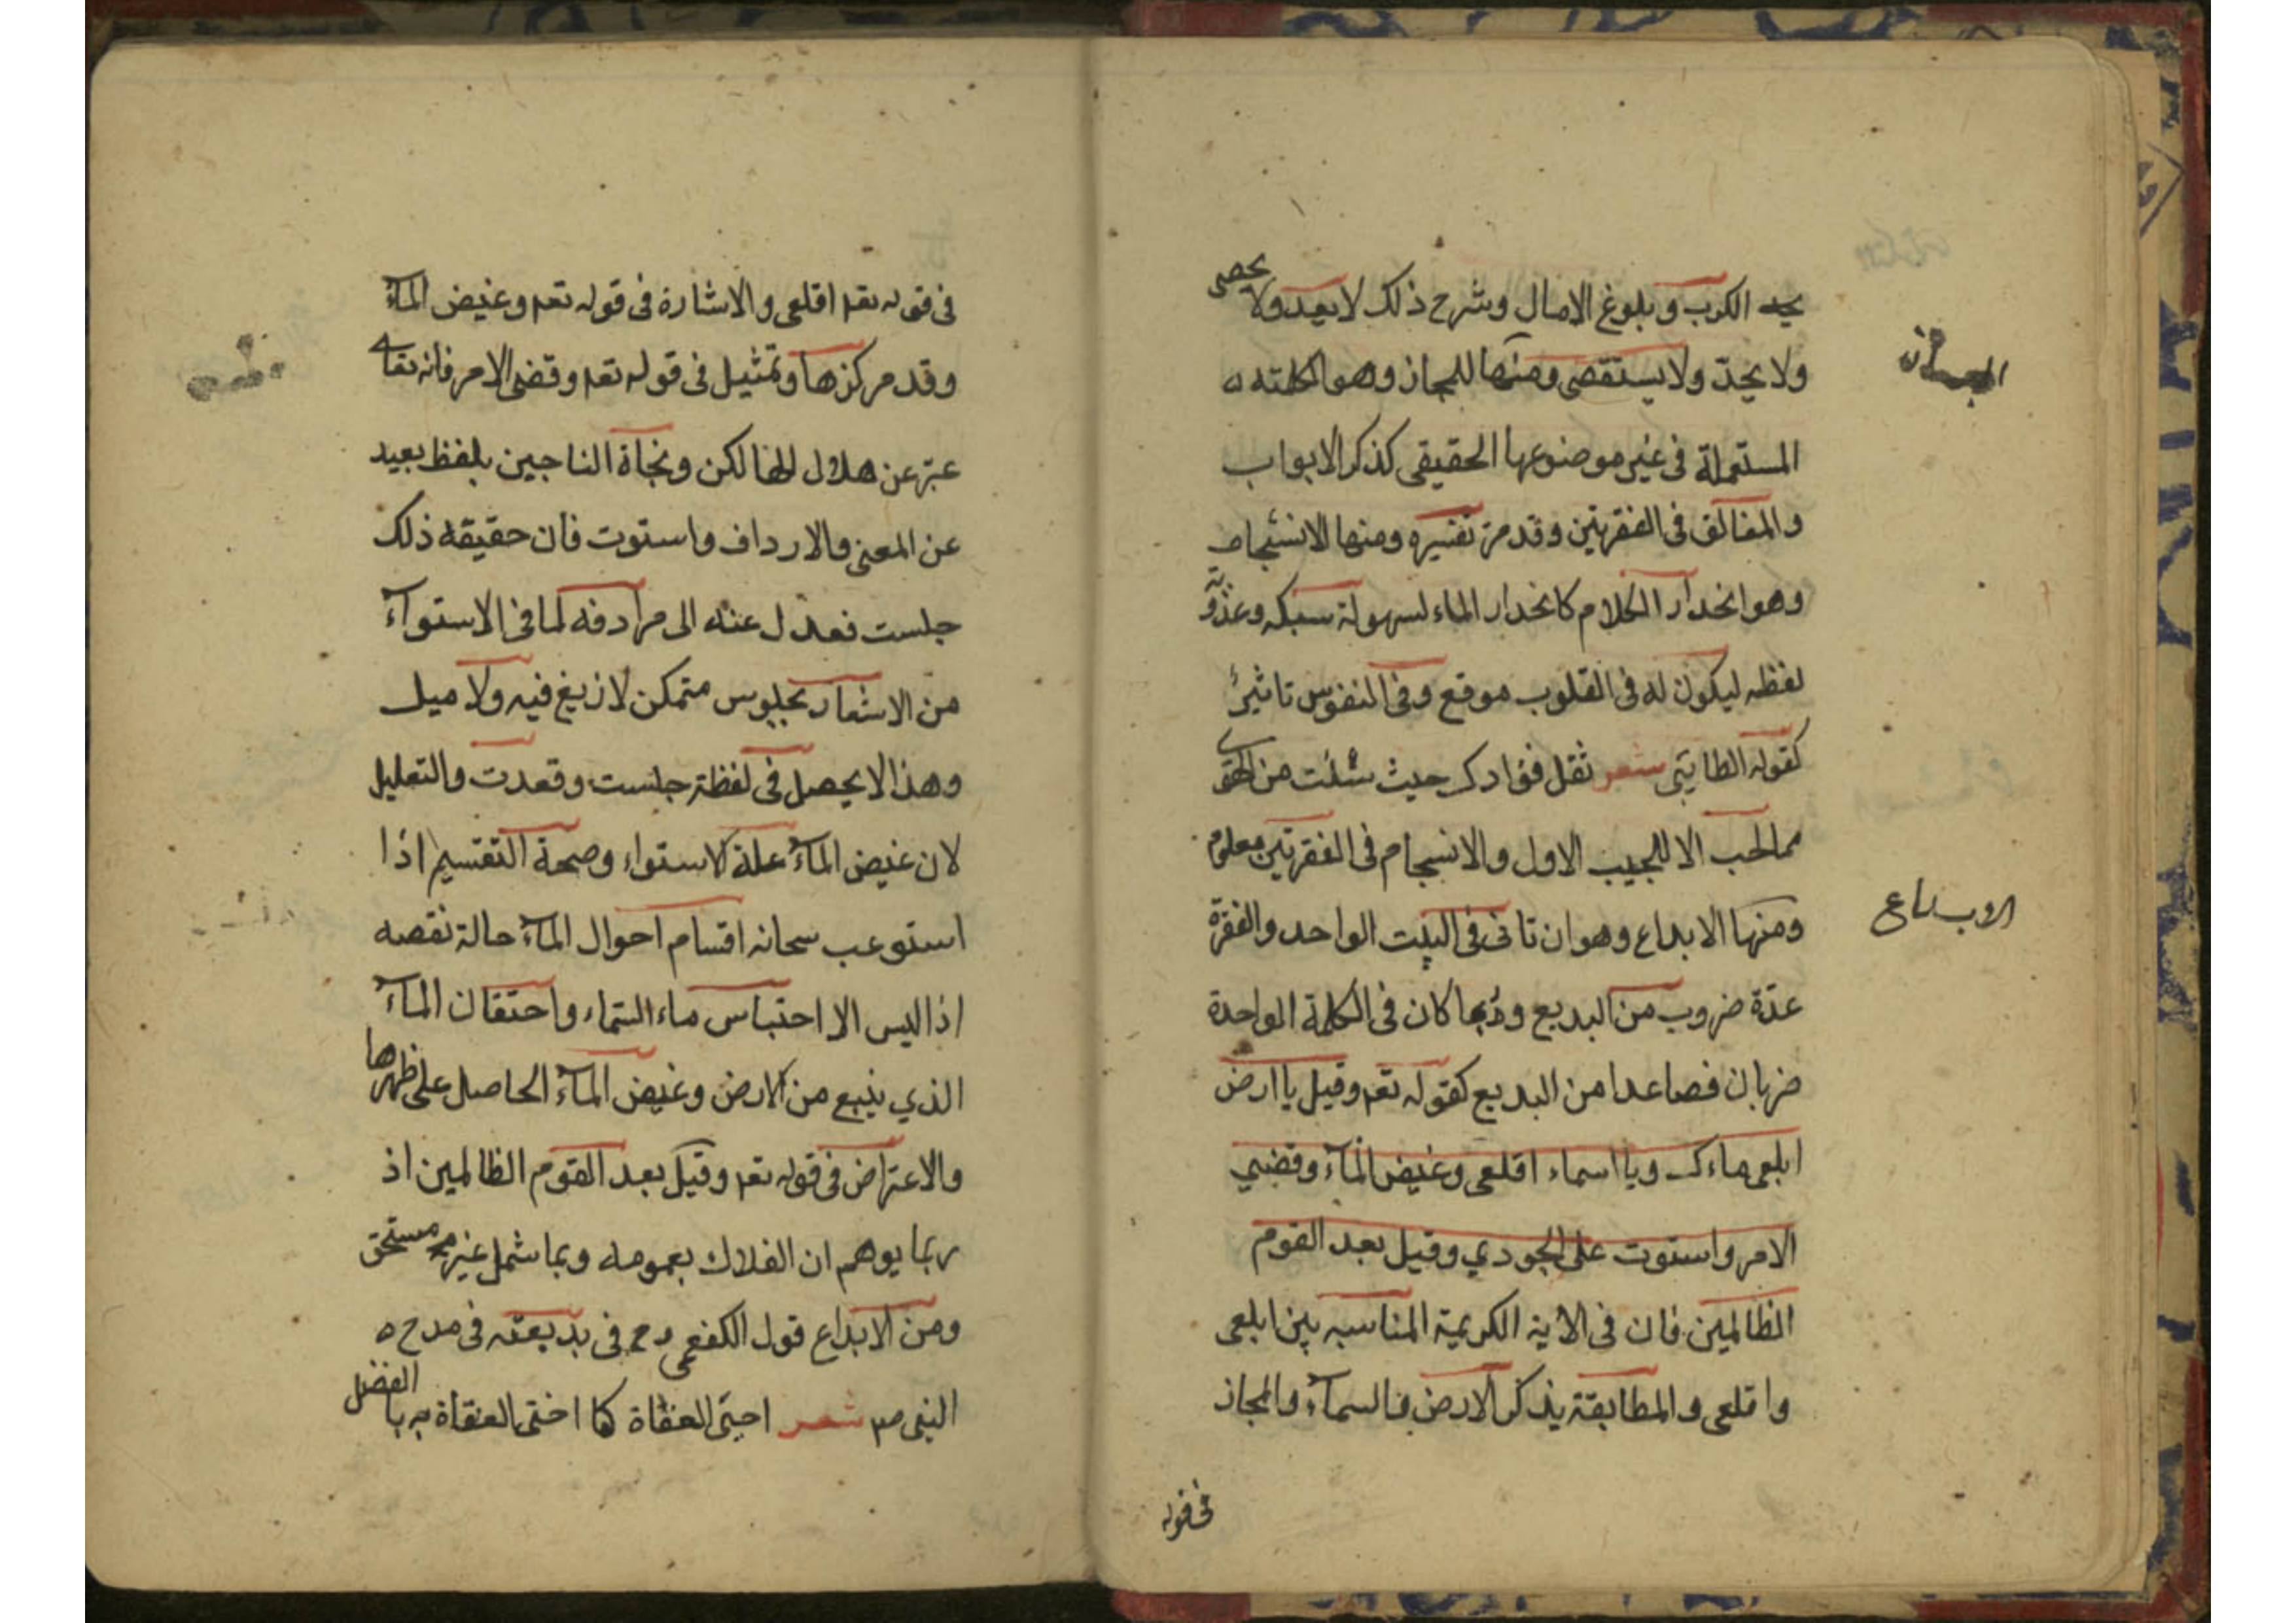 الكرب وبلوغ الامال وشرح ذلك لا يعد ولا يحصى
ولا يحدّ ولا يستقصى ومنها المجاز وهو الكلمة
المستعملة فى غير موضوعها الحقيقى كذكر الابواب
والمغالق فى الفقرتين وقد مر تفسيره ومنها الانسجام
وهو انحدار الكلام كانحدار الماء لسهولة سبكه وعذوبة
لفظه ليكون له فى القلوب موقع وفى النفوس تاثير
كقوله الطايى شعر نقل فوادك حيث شئت من الهوى
مالحب الا للحبيب الاول والانسجام فى الفقرتين معلوم
ومنها الابداع وهو ان تاتى فى البيت الواحد والفقرة
عدّة ضروب من البديع وربما كان فى الكلمة الواحدة
ضربان فصاعدا من البديع كقوله تعم وقيل يا ارض
ابلعى ماءك ويا اسماء اقلعى وغيض المآء وقضي
الامر واستوت على الجودي وقيل بعد القوم
الظالمين فان فى الاية الكريمة المناسبه بين ابلعى
واقلعى والمطابقة بذكر الارض والسمآء والمجاز
فى قوله
الابداع
فى قوله تعم اقلعى والاشارة فى قوله تعم وغيض المآء
وقد مر كنزها وتمثيل فى قوله تعم وقضى الامر فانه تعا
عبّر عن هلاك الهالكن ونجاة الناجين بلفظ بعيد
عن المعنى والارداف واستوت فان حقيقه ذلك
جلست فعدل عنه الى مرادفه لما فى الاستوآء
من الاشعار بجلوس متمكن لا زيغ فيه ولا ميل
وهذا لا يحصل فى لفظة جلست وقعدت والتعليل
لان غيض المآء علة الاستواء وصحة التقسيم اذا
استوعب سحانه اقسام احوال المآء حالة نقصه
اذ اليس الا احتباس ماء السّماء واحتقان المآء
الذي ينبع من الارض وغيض المآء الحاصل على ظهرها
والاعتراض فى قوله تعم وقيل بعد القوم الظالمين اذ
ربما يوهم ان الهلاك بعمومه وبما شمل غير مستحق
ومن الابداع قول الكفعمى رح فى بديعته فى مدح
النبى ص شعر العفاة كما العفاة به بالفضل